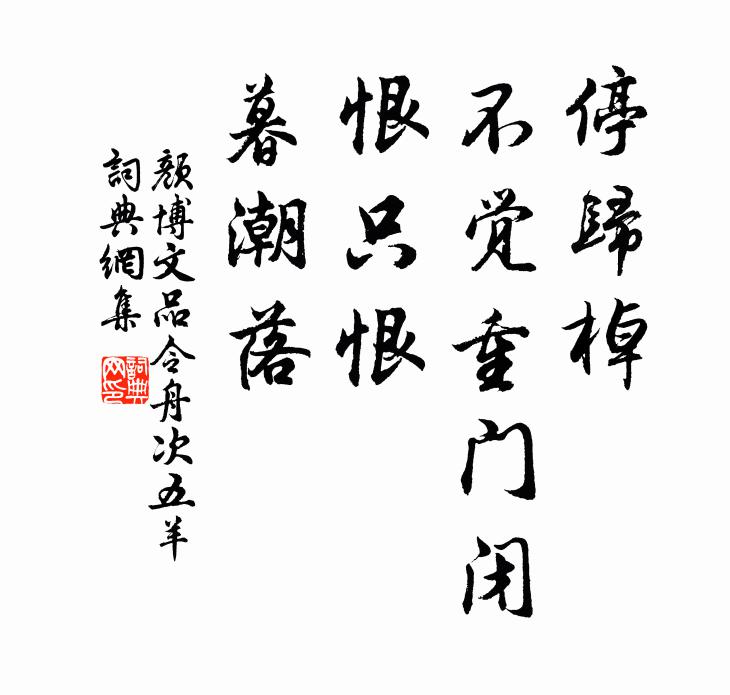 停歸棹
不觉重门闭
恨只恨
暮潮落
颜博文品令舟次五羊
詞典網集
詞典网印